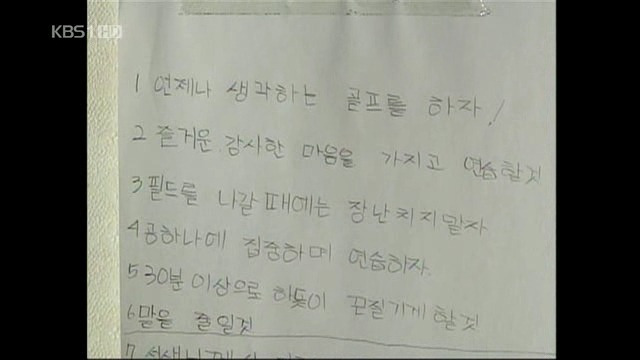 KBS1HD
1 언제나 생각하는 골프를 하자!
2 즐거운.감사한 마음을 가지고 연습할것
3 필드를 나갈때에는 장난치지말자
4 공하나에 집중하며 연습하자.
5 30분이상으로 하듯이 끈질기게할것
6 말을 줄일것
7